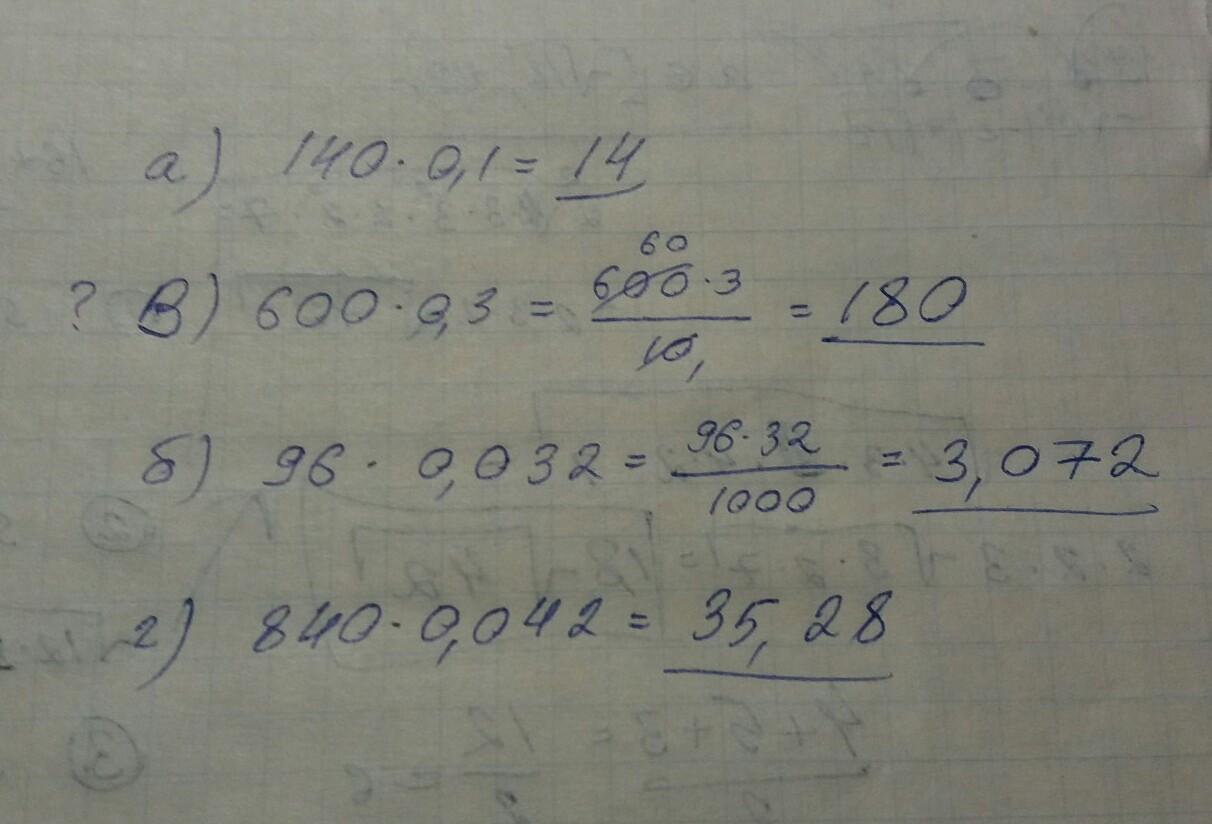 а) 140 · 0,1 = 14
? В) 600 · 0,3 = 60 600 · 3 / 10, = 180
б) 96 · 0,032 = 96 · 32 / 1000 = 3,072
г) 840 · 0,042 = 35,28